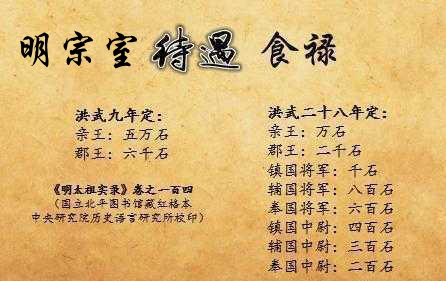 明宗室 待遇 食禄
洪武九年定：
亲王：五万石
郡王：六千石
《明太祖实录》卷之一百四
（国立北平图书馆藏红格本
中央研究院历史语言研究所校印）
洪武二十八年定：
亲王：万石
郡王：二千石
镇国将军：千石
辅国将军：八百石
奉国将军：六百石
镇国中尉：四百石
辅国中尉：三百石
奉国中尉：二百石